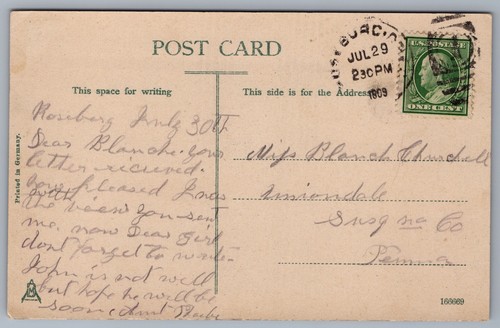 POST CARD
This space for writing
This side is for the Address
ROSEBURG
JUL 29
230PM
1909
U.S. POSTAGE
ONE CENT
Printed in Germany.
Roseburg July 30th
Dear Blanche your
letter recieved.
how pleased I was
with
the views you sent
me. now Dear Girl
dont forget to write
John is not well
but hope he will be
soon Aunt
Miss Blanch Churchill
Uniondale
Susq na Co
Penna
166669